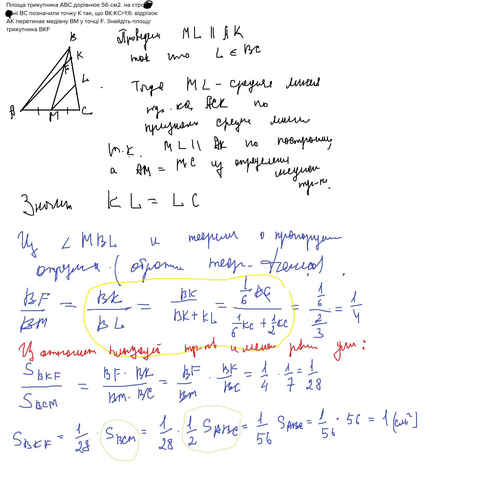 Площа трикутника ABC дорівнює 56 см2. на сторо
ні BC позначили точку K так, що BK:KC=1:6. відрізок
AK перетинає медіану BM у точці F. Знайдіть площу
трикутника BKF
Проведем ML || AK
так что L ∈ BC
B
K
F
L
A
M
C
Тогда ML - средняя линия
тр-ка ACK по
признаку средне линии
т.к. ML || AK по построению,
а AM = MC из определения
медианы
тр-ка.
Значит KL = LC
Из ∠ MBL и теоремы о пропорции
отрезках (обратн теор. Фалеса).
BF/BM = BK/BL = BK/(BK + KL) = (1/6 KC)/(1/6 KC + 1/2 KC) = (1/6)/(2/3) = 1/4
Из отношения площадей тр-ков
S BKF / S BCM = (BF · BK)/(BM · BC) = BF/BM · BK/BC = 1/4 · 1/7 = 1/28
S BKF = 1/28 · S BCM = 1/28 · 1/2 S ABC = 1/56 S ABC = 1/56 · 56 = 1 (см²)